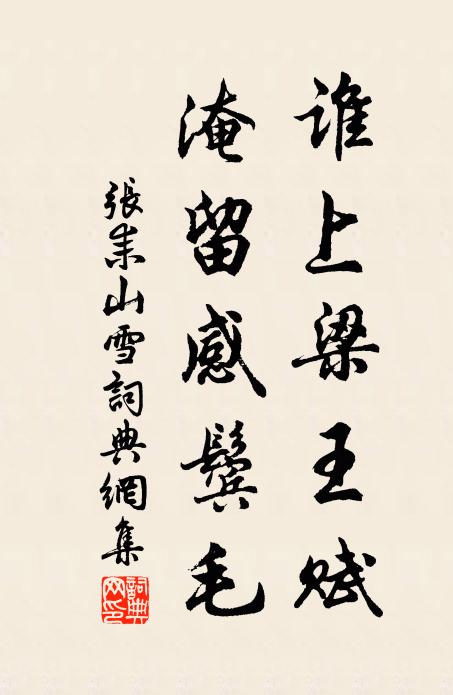 谁上梁王赋
淹留感鬓毛
張耒山雪詞典網集
詞典网印